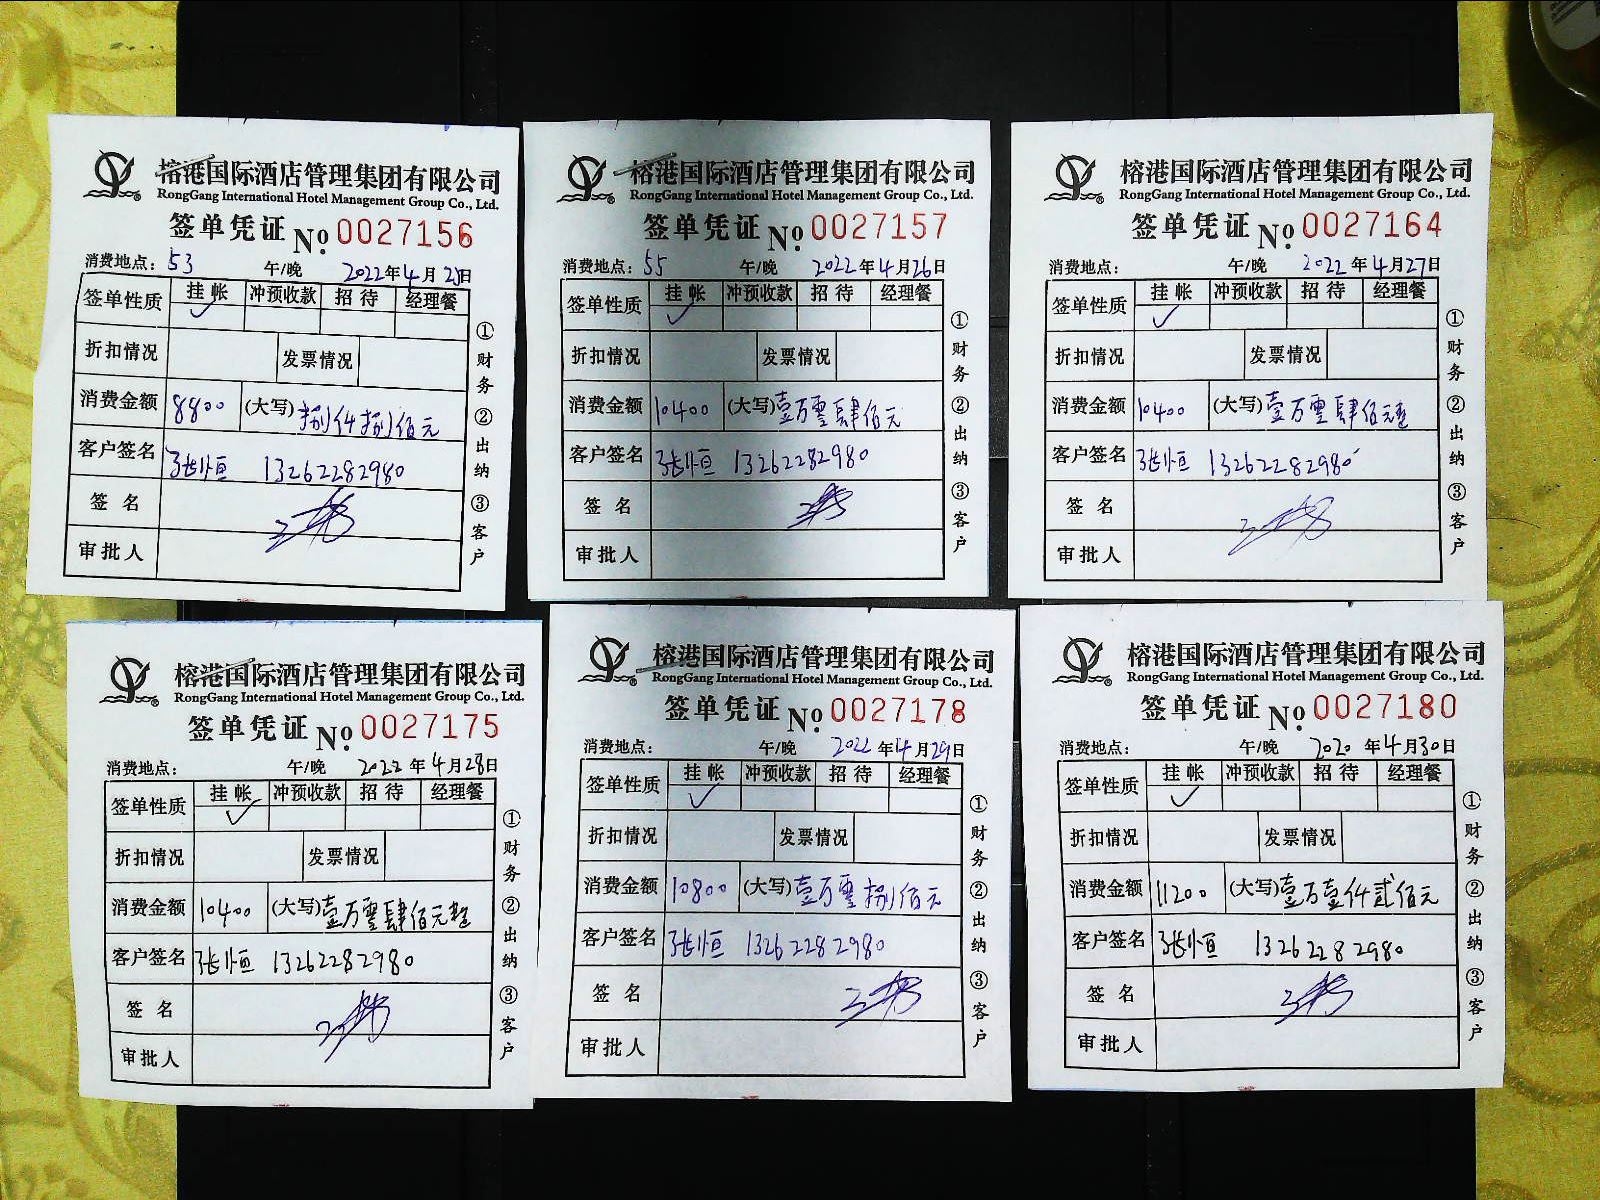 榕港国际酒店管理集团有限公司
RongGang International Hotel Management Group Co., Ltd.
签单凭证 No. 0027156
消费地点: 53 午/晚 2022年4月25日
签单性质 挂帐 冲预收款 招待 经理餐
✓
折扣情况 发票情况
消费金额 8800 (大写) 捌仟捌佰元
客户签名 张恒 13262282980
签名
审批人
①财务 ②出纳 ③客户
榕港国际酒店管理集团有限公司
RongGang International Hotel Management Group Co., Ltd.
签单凭证 No. 0027157
消费地点: 55 午/晚 2022年4月26日
签单性质 挂帐 冲预收款 招待 经理餐
✓
折扣情况 发票情况
消费金额 10400 (大写) 壹万零肆佰元
客户签名 张恒 13262282980
签名
审批人
①财务 ②出纳 ③客户
榕港国际酒店管理集团有限公司
RongGang International Hotel Management Group Co., Ltd.
签单凭证 No. 0027164
消费地点: 午/晚 2022年4月27日
签单性质 挂帐 冲预收款 招待 经理餐
✓
折扣情况 发票情况
消费金额 10400 (大写) 壹万零肆佰元整
客户签名 张恒 13262282980
签名
审批人
①财务 ②出纳 ③客户
榕港国际酒店管理集团有限公司
RongGang International Hotel Management Group Co., Ltd.
签单凭证 No. 0027175
消费地点: 午/晚 2022年4月28日
签单性质 挂帐 冲预收款 招待 经理餐
✓
折扣情况 发票情况
消费金额 10400 (大写) 壹万零肆佰元整
客户签名 张恒 13262282980
签名
审批人
①财务 ②出纳 ③客户
榕港国际酒店管理集团有限公司
RongGang International Hotel Management Group Co., Ltd.
签单凭证 No. 0027178
消费地点: 午/晚 2022年4月29日
签单性质 挂帐 冲预收款 招待 经理餐
✓
折扣情况 发票情况
消费金额 10800 (大写) 壹万零捌佰元
客户签名 张恒 13262282980
签名
审批人
①财务 ②出纳 ③客户
榕港国际酒店管理集团有限公司
RongGang International Hotel Management Group Co., Ltd.
签单凭证 No. 0027180
消费地点: 午/晚 2020年4月30日
签单性质 挂帐 冲预收款 招待 经理餐
✓
折扣情况 发票情况
消费金额 11200 (大写) 壹万壹仟贰佰元
客户签名 张恒 13262282980
签名
审批人
①财务 ②出纳 ③客户